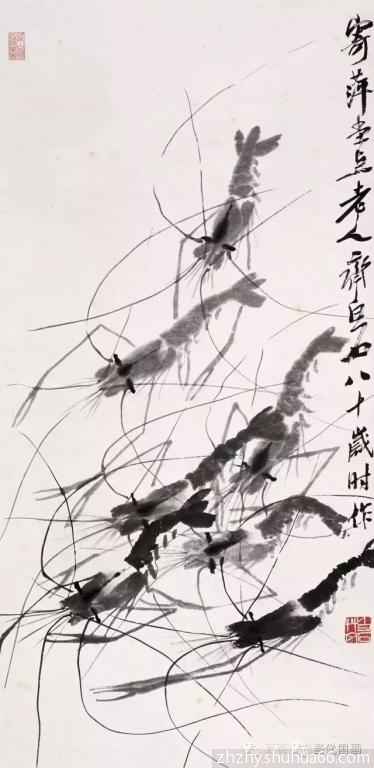 寄萍堂上老人齊白石八十歲时作
zhzhy.shuhua66.com